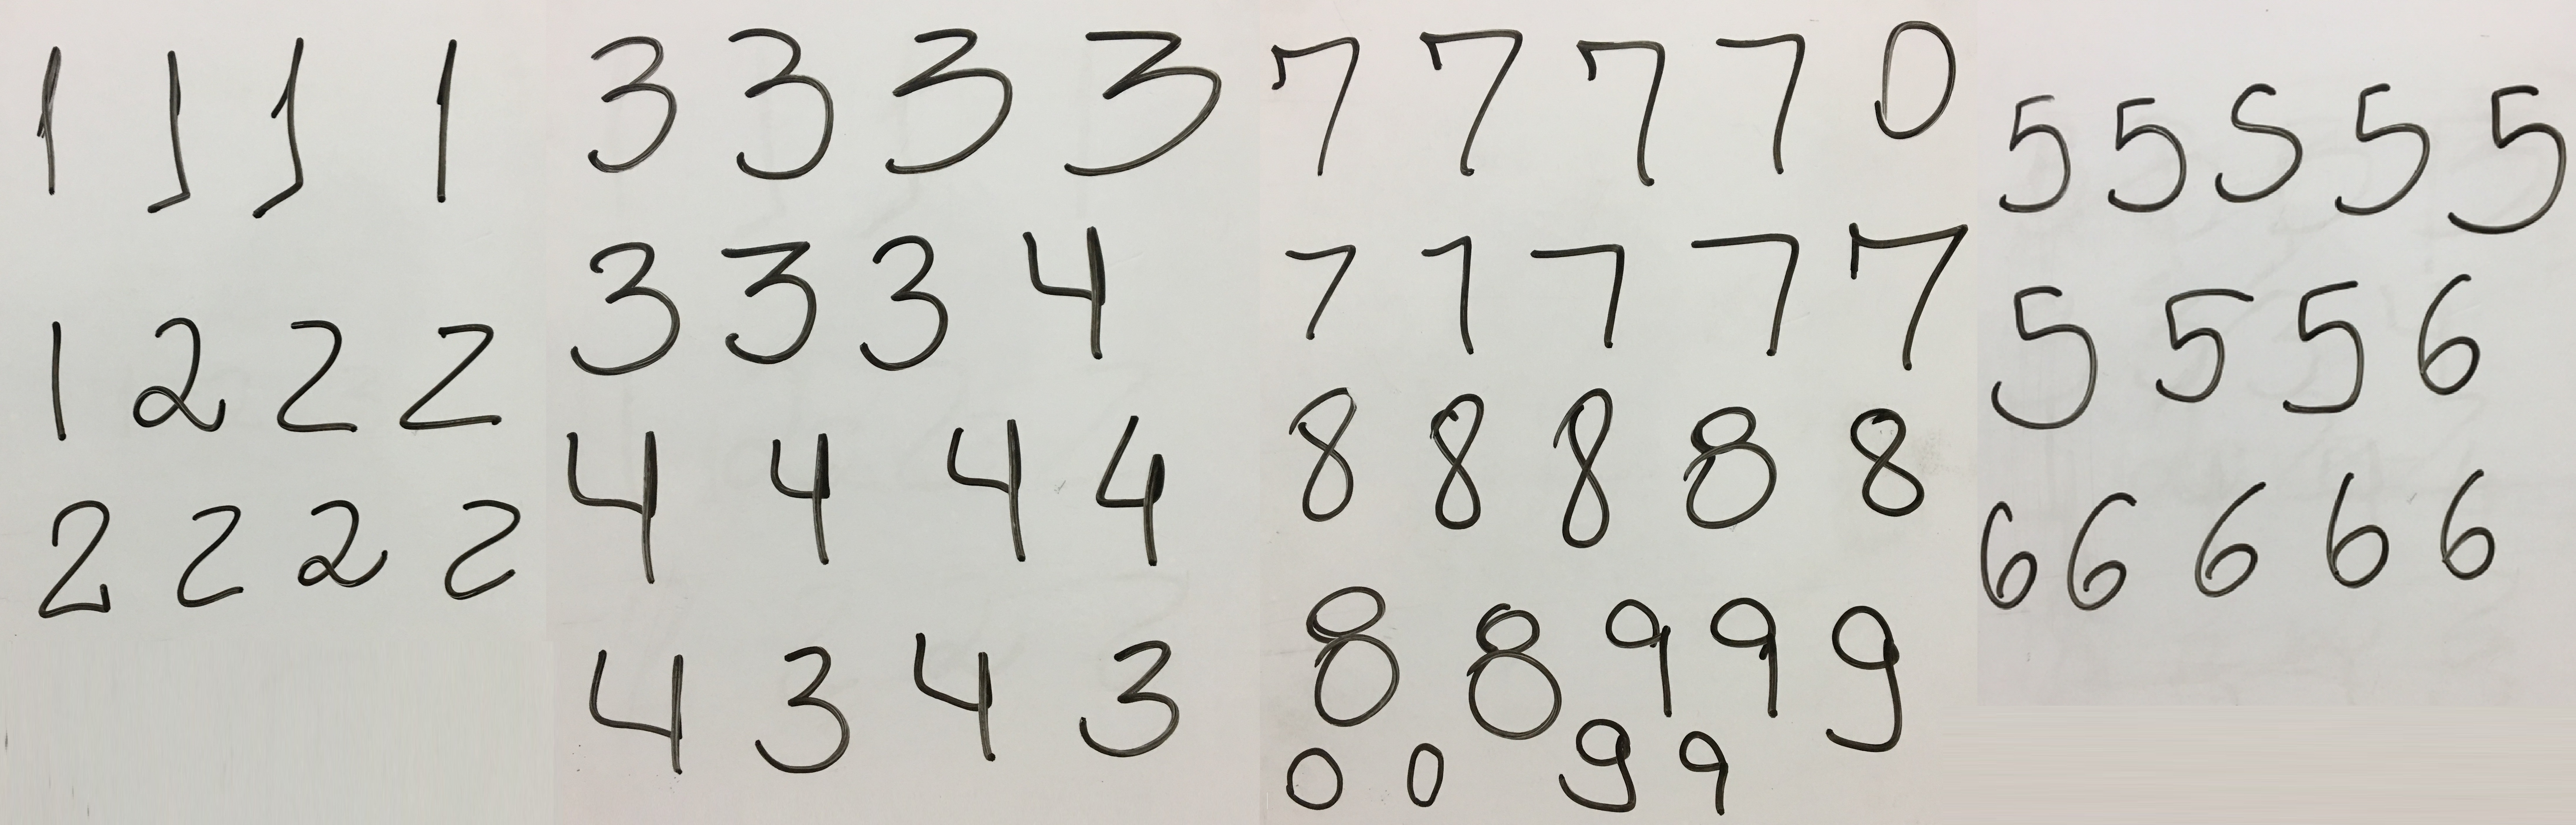 1 1 1 1
1 2 2 2
2 2 2 2
3 3 3 3
3 3 3 4
4 4 4 4
4 3 4 3
7 7 7 7 0
7 7 7 7 7
8 8 8 8 8
8 8 9 9 9
0 0 9 9
5 5 5 5 5
5 5 5 6
6 6 6 6 6